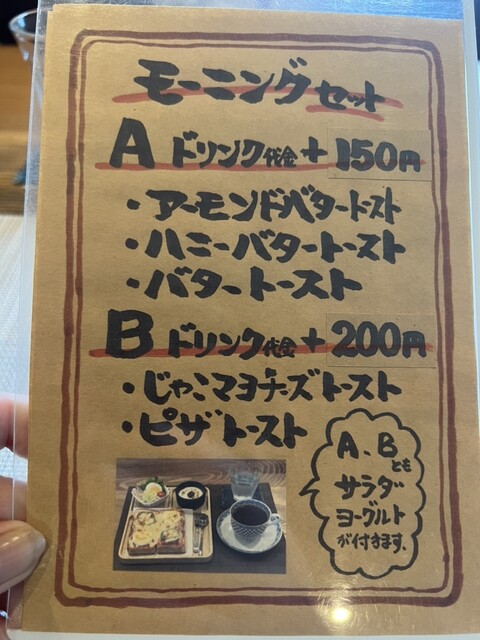 モーニングセット
A ドリンク代金+150円
・アーモンドバタートースト
・ハニーバタートースト
・バタートースト
B ドリンク代金+200円
・じゃこマヨチーズトースト
・ピザトースト
A、B
とも
サラダ
ヨーグルト
が付きます。